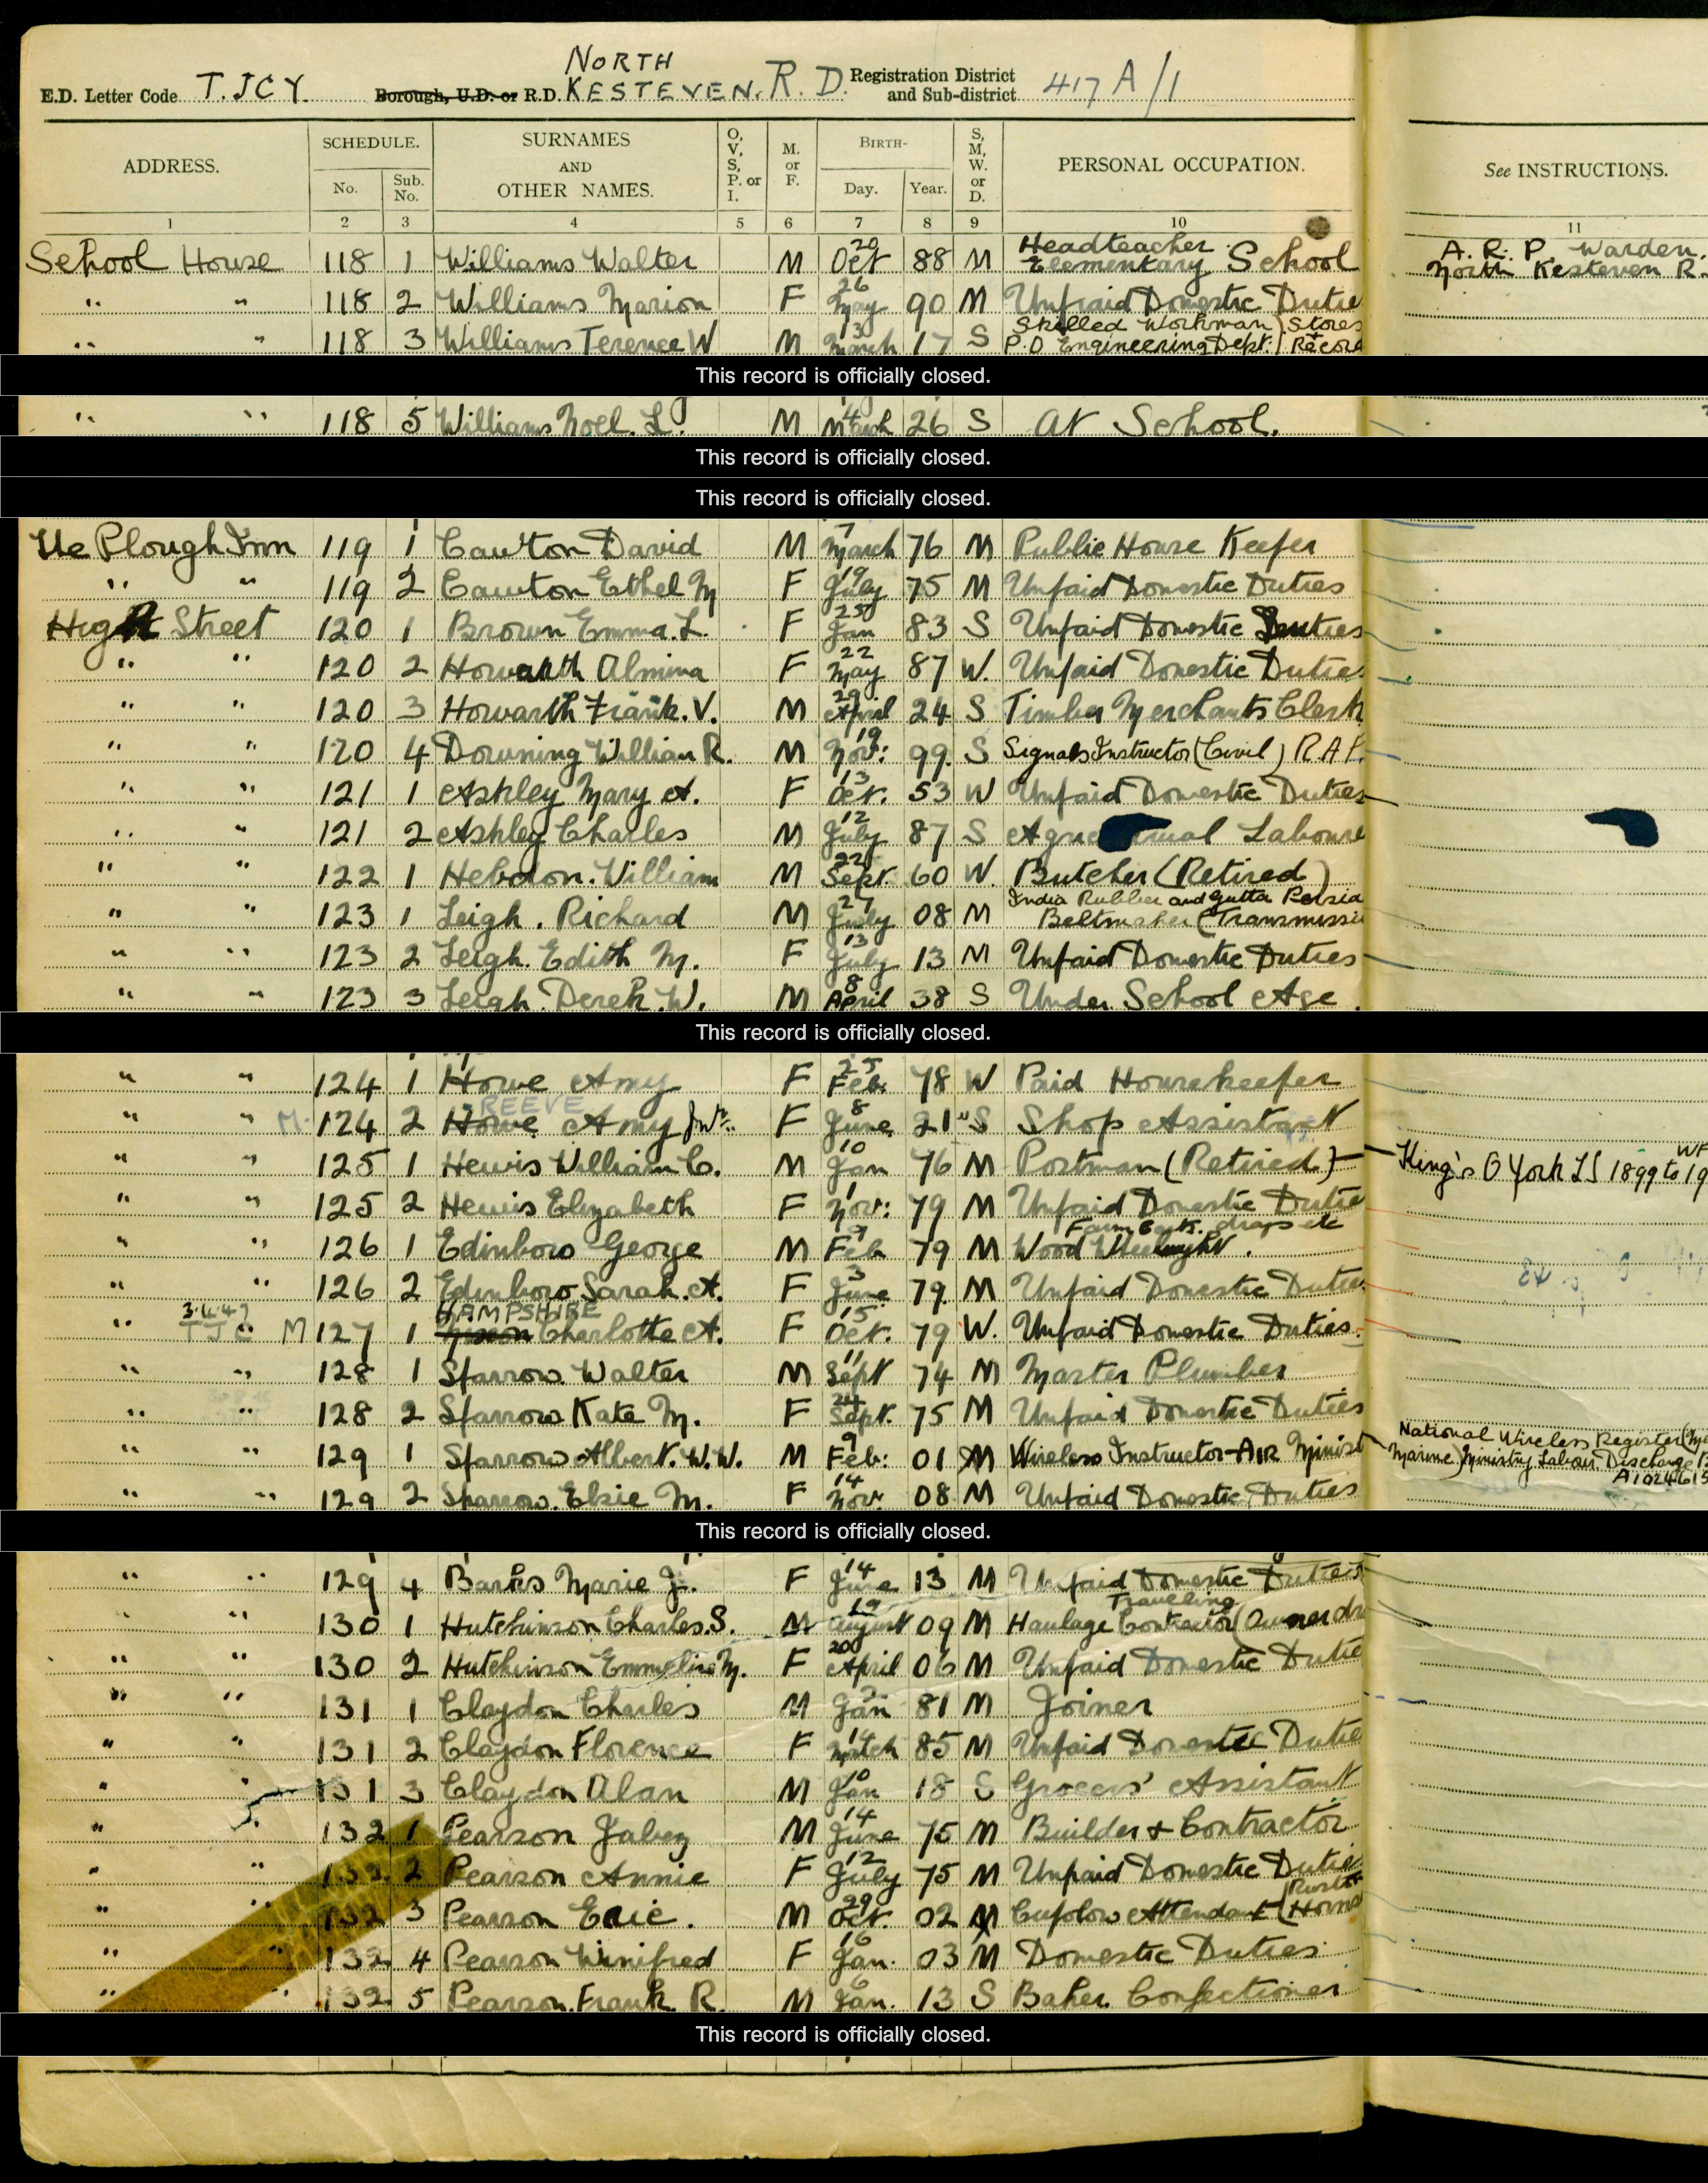 NORTH
E.D. Letter Code T.JCY. Borough, U.D. or R.D. KESTEVEN. R.D. Registration District and Sub-district 417 A/1
ADDRESS. SCHEDULE. No. Sub. No. SURNAMES AND OTHER NAMES. O, V, S, P. or I. M. or F. BIRTH- Day. Year. S, M, W. or D. PERSONAL OCCUPATION. See INSTRUCTIONS.
1 2 3 4 5 6 7 8 9 10 11
School House 118 1 Williams Walter M 20 Oct 88 M Headteacher Elementary School A. R. P Warden. North Kesteven R.
" " 118 2 Williams Marion F 26 May 90 M Unpaid Domestic Dutie
" " 118 3 Williams Terence W M 13 March 17 S Skilled Workman P.O Engineering Dept. Stores Record
This record is officially closed.
" " 118 5 Williams Noel. L. M 4 March 26 S At School.
This record is officially closed.
This record is officially closed.
The Plough Inn 119 1 Cawton David M 7 March 76 M Public House Keeper
" " 119 2 Cawton Ethel M F 19 July 75 M Unpaid Domestic Duties
High Street 120 1 Brown Emma. L. F Jan 83 S Unpaid Domestic Duties
" " 120 2 Howarth Almina F 22 May 87 W. Unpaid Domestic Duties
" " 120 3 Howarth Frank. V. M 29 April 24 S Timber Merchants Clerk
" " 120 4 Downing William R. M 19 Nov: 99. S Signals Instructor (Civil) R.A.F.
" " 121 1 Ashley Mary A. F 13 Oct. 53 W Unpaid Domestic Duties
" " 121 2 Ashley Charles M 12 July 87 S Laboure
" " 122 1 Hebdon. William M 22 Sept. 60 W. Butcher (Retired)
" " 123 1 Leigh. Richard M 27 July 08 M India Rubber and Gutta Persia Beltmaker (Transmissi
" " 123 2 Leigh. Edith M. F 13 July 13 M Unpaid Domestic Duties
" " 123 3 Leigh. Derek. W. M 8 April 38 S Under School Age.
This record is officially closed.
" " 124 1 Howe Amy F 25 Feb. 78 W Paid Housekeeper
REEVE
" " M. 124 2 Howe Amy Jnr. F 8 June 21 S Shop Assistant
" " 125 1 Hewis William C. M 10 Jan 76 M Postman (Retired) King's O York LI 1899 to 19
" " 125 2 Hewis Elizabeth F 1 Nov: 79 M Unpaid Domestic Dutie
" " 126 1 Edinboro George M 9 Feb 79 M Wood Wheelwright. Farm Carts. drays etc
" " 126 2 Edinboro Sarah. A. F 3 June 79. M Unpaid Domestic Dutie
3.4.47 HAMPSHIRE
" TJC " M 127 1 Charlotte A. F 15 Oct. 79 W. Unpaid Domestic Duties.
" " 128 1 Sparrow Walter M 11 Sept 74 M Master Plumber
" " 128 2 Sparrow Kate M. F 24 Sept. 75 M Unpaid Domestic Duties
" " 129 1 Sparrow Albert. W.W. M 9 Feb: 01 M Wireless Instructor-AIR Minist National Wireless Register (Me Marine) Ministry Labour. Discharge
" " 129 2 Sparrow. Elsie M. F 14 Nov 08 M Unpaid Domestic Duties
This record is officially closed.
" " 129 4 Banks Marie J. F 14 June 13 M Unpaid Domestic Duties
" " 130 1 Hutchinson Charles. S. M 19 August 09 M Haulage Contractor Travelling (Owner dr
" " 130 2 Hutchinson Emmeline M. F 20 April 06 M Unpaid Domestic Dutie
" " 131 1 Claydon Charles M 2 Jan 81 M Joiner
" " 131 2 Claydon Florence F 14 March 85 M Unpaid Domestic Dutie
" " 131 3 Claydon Alan M 10 Jan 18 S Grocers' Assistant
" " 132 1 Pearson Jabez M 14 June 75 M Builder & Contractor
" " 132 2 Pearson Annie F 12 July 75 M Unpaid Domestic Dutie
" " 132 3 Pearson Eric. M 29 Oct. 02 M Cupolow Attendant (Rusto Horns
" " 132 4 Pearson Winifred F 16 Jan. 03 M Domestic Duties
" " 132 5 Pearson. Frank R. M 6 Jan. 13 S Baker. Confectioner
This record is officially closed.